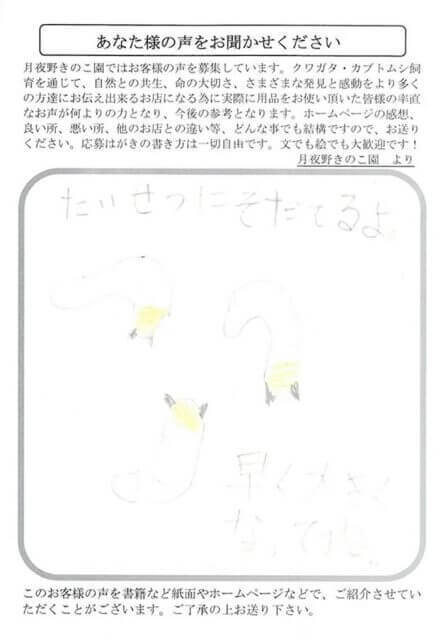 あなた様の声をお聞かせください
月夜野きのこ園ではお客様の声を募集しています。クワガタ・カブトムシ飼
育を通じて、自然との共生、命の大切さ、さまざまな発見と感動をより多く
の方達にお伝え出来るお店になる為に実際に用品をお使い頂いた皆様の率直
なお声が何よりの力となり、今後の参考となります。ホームページの感想、
良い所、悪い所、他のお店との違い等、どんな事でも結構ですので、お送り
ください。応募はがきの書き方は一切自由です。文でも絵でも大歓迎です！
月夜野きのこ園 より
たいせつにそだてるよ。
早く大きく
なってね。
このお客様の声を書籍など紙面やホームページなどで、ご紹介させていた
だくことがございます。ご了承の上お送り下さい。